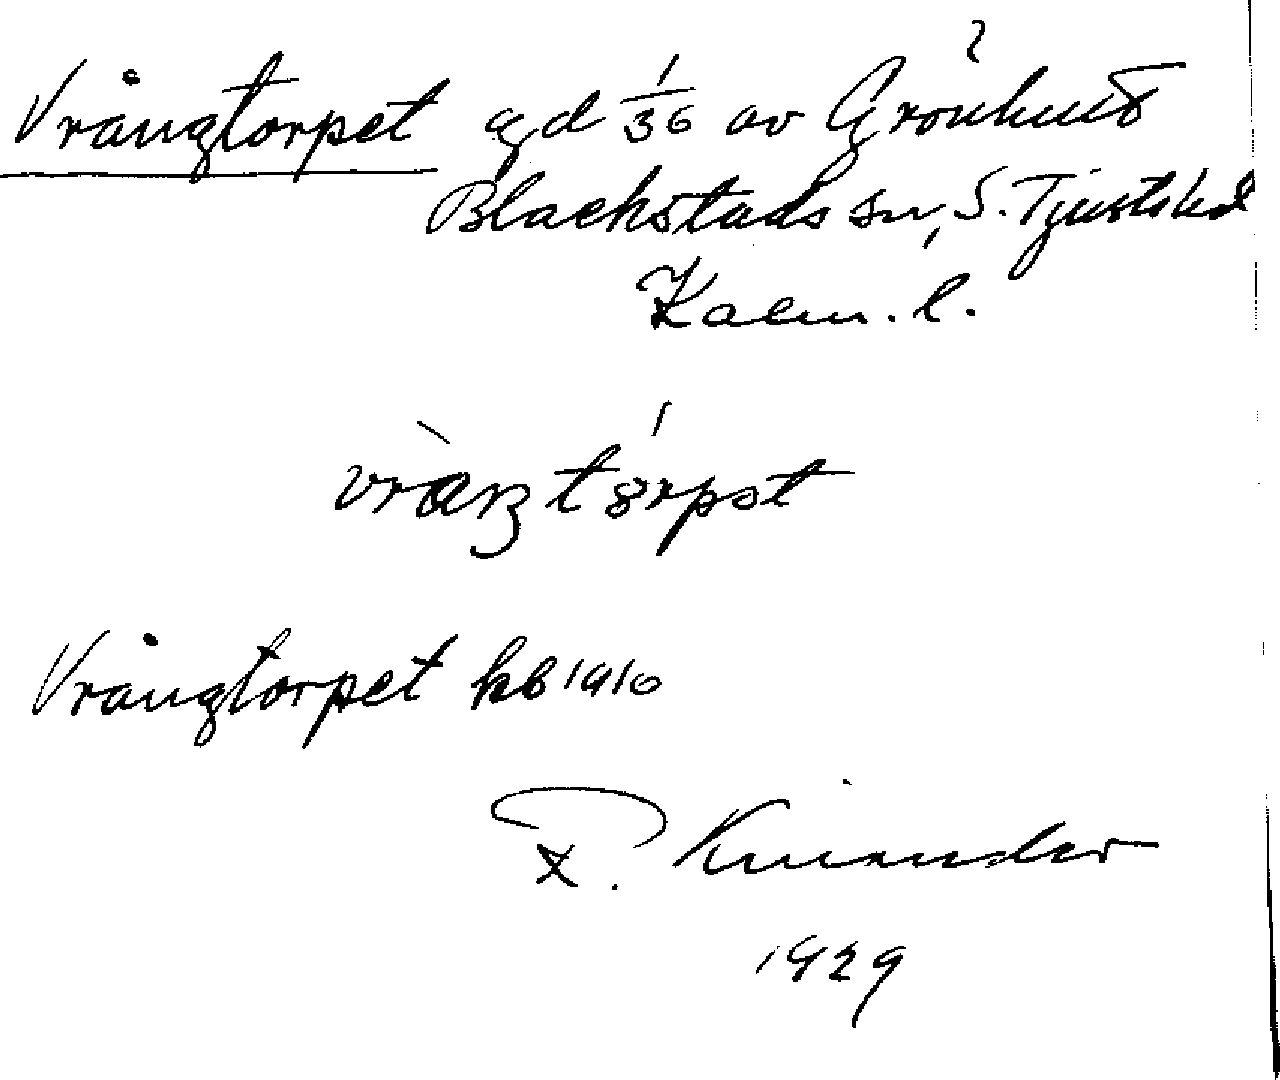 Vrångtorpet gd 1/36 av Grönhult
Blackstads sn, S. Tjusts hd
Kalm. l.
Vrångtorpet kb 1910
R. Kinander
1929